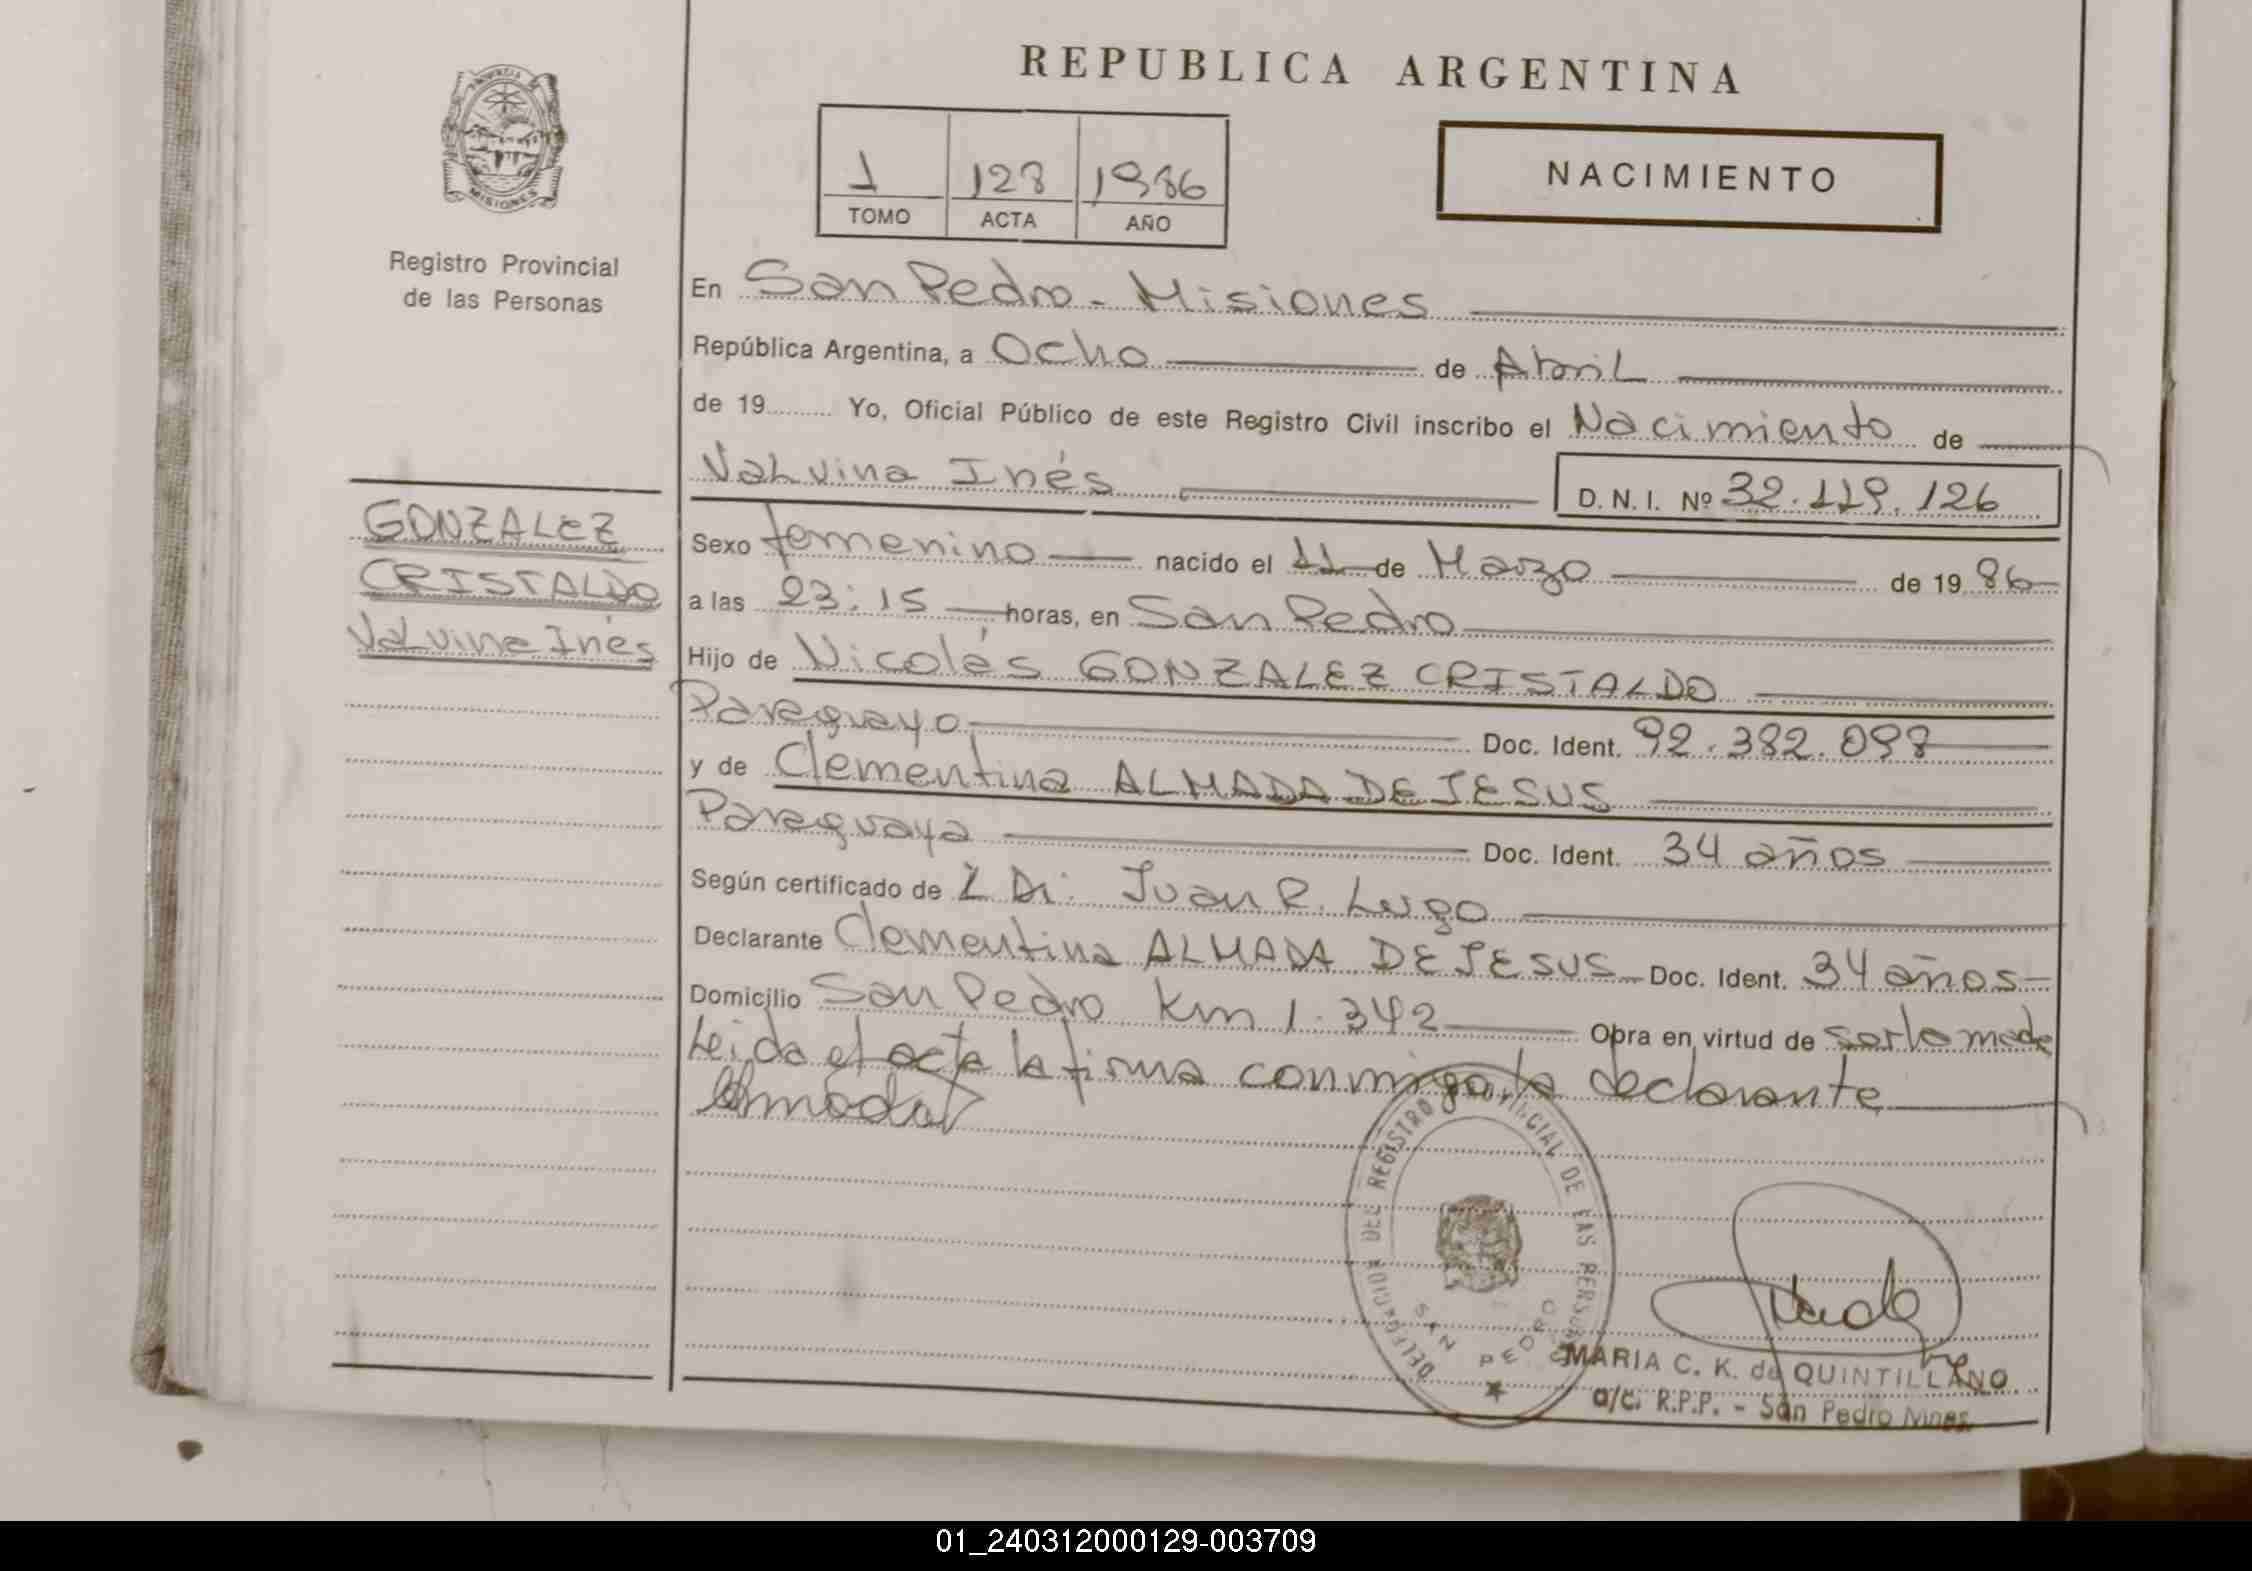 REPUBLICA ARGENTINA
PROVINCIA DE
MISIONES
Registro Provincial
de las Personas
1 128 1986
TOMO ACTA AÑO
NACIMIENTO
En San Pedro - Misiones
República Argentina, a Ocho de Abril
de 19 Yo, Oficial Público de este Registro Civil inscribo el Nacimiento de
Valvina Inés D. N. I. Nº 32.119.126
GONZALEZ
CRISTALDO
Valvina Inés
Sexo femenino nacido el 11 de Marzo de 19 86
a las 23:15 horas, en San Pedro
Hijo de Nicolás GONZALEZ CRISTALDO
Paraguayo Doc. Ident. 92.382.098
y de Clementina ALMADA DE JESUS
Paraguaya Doc. Ident. 34 años
Según certificado de Juan R. Lugo
Declarante Clementina ALMADA DE JESUS Doc. Ident. 34 años
Domicilio San Pedro Km 1.342 Obra en virtud de ser la madre
Leida el acta la firma conmigo la declarante
Almada
DELEGACION DEL REGISTRO PROVINCIAL DE LAS PERSONAS
SAN PEDRO
MARIA C. K. de QUINTILLANO
a/c. R.P.P. - San Pedro Mnes.
01_240312000129-003709